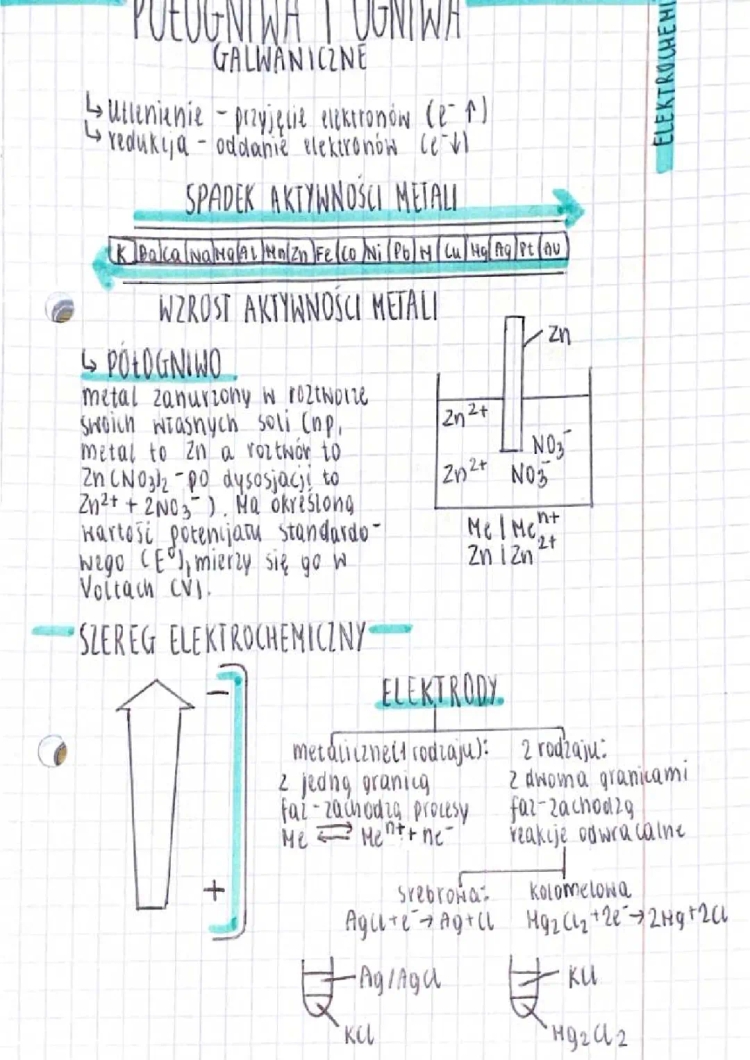 PÓŁOGNIWA I OGNIWA
GALWANICZNE
ELEKTROCHEMI
↳ utlenienie - przyjęcie elektronów (e⁻ ↑)
↳ redukcja - oddanie elektronów (e⁻↓)
SPADEK AKTYWNOŚCI METALI
K Ba Ca Na Mg Al Mn Zn Fe Co Ni Pb H Cu Hg Ag Pt Au
WZROST AKTYWNOŚCI METALI
↳ PÓŁOGNIWO
metal zanurzony w roztworze
swoich własnych soli (np.
metal to Zn a roztwór to
Zn(NO3)2 - po dysosjacji to
Zn²⁺ + 2NO3⁻). Ma określoną
wartość potencjału standardo-
wego (E⁰), mierzy się go w
Voltach (V).
Zn
Zn²⁺
NO3⁻
Zn²⁺ NO3⁻
Me | Meⁿ⁺
Zn | Zn²⁺
SZEREG ELEKTROCHEMICZNY
−
+
ELEKTRODY
metaliczne (1 rodzaju):
z jedną granicą
faz - zachodzą procesy
Me ⇌ Meⁿ⁺ + ne⁻
2 rodzaju:
z dwoma granicami
faz - zachodzą
reakcje odwracalne
srebrowa:
AgCl + e⁻ → Ag + Cl
kolomelowa
Hg2Cl2 + 2e⁻ → 2Hg + 2Cl
Ag/AgCl
KCl
KCl
Hg2Cl2